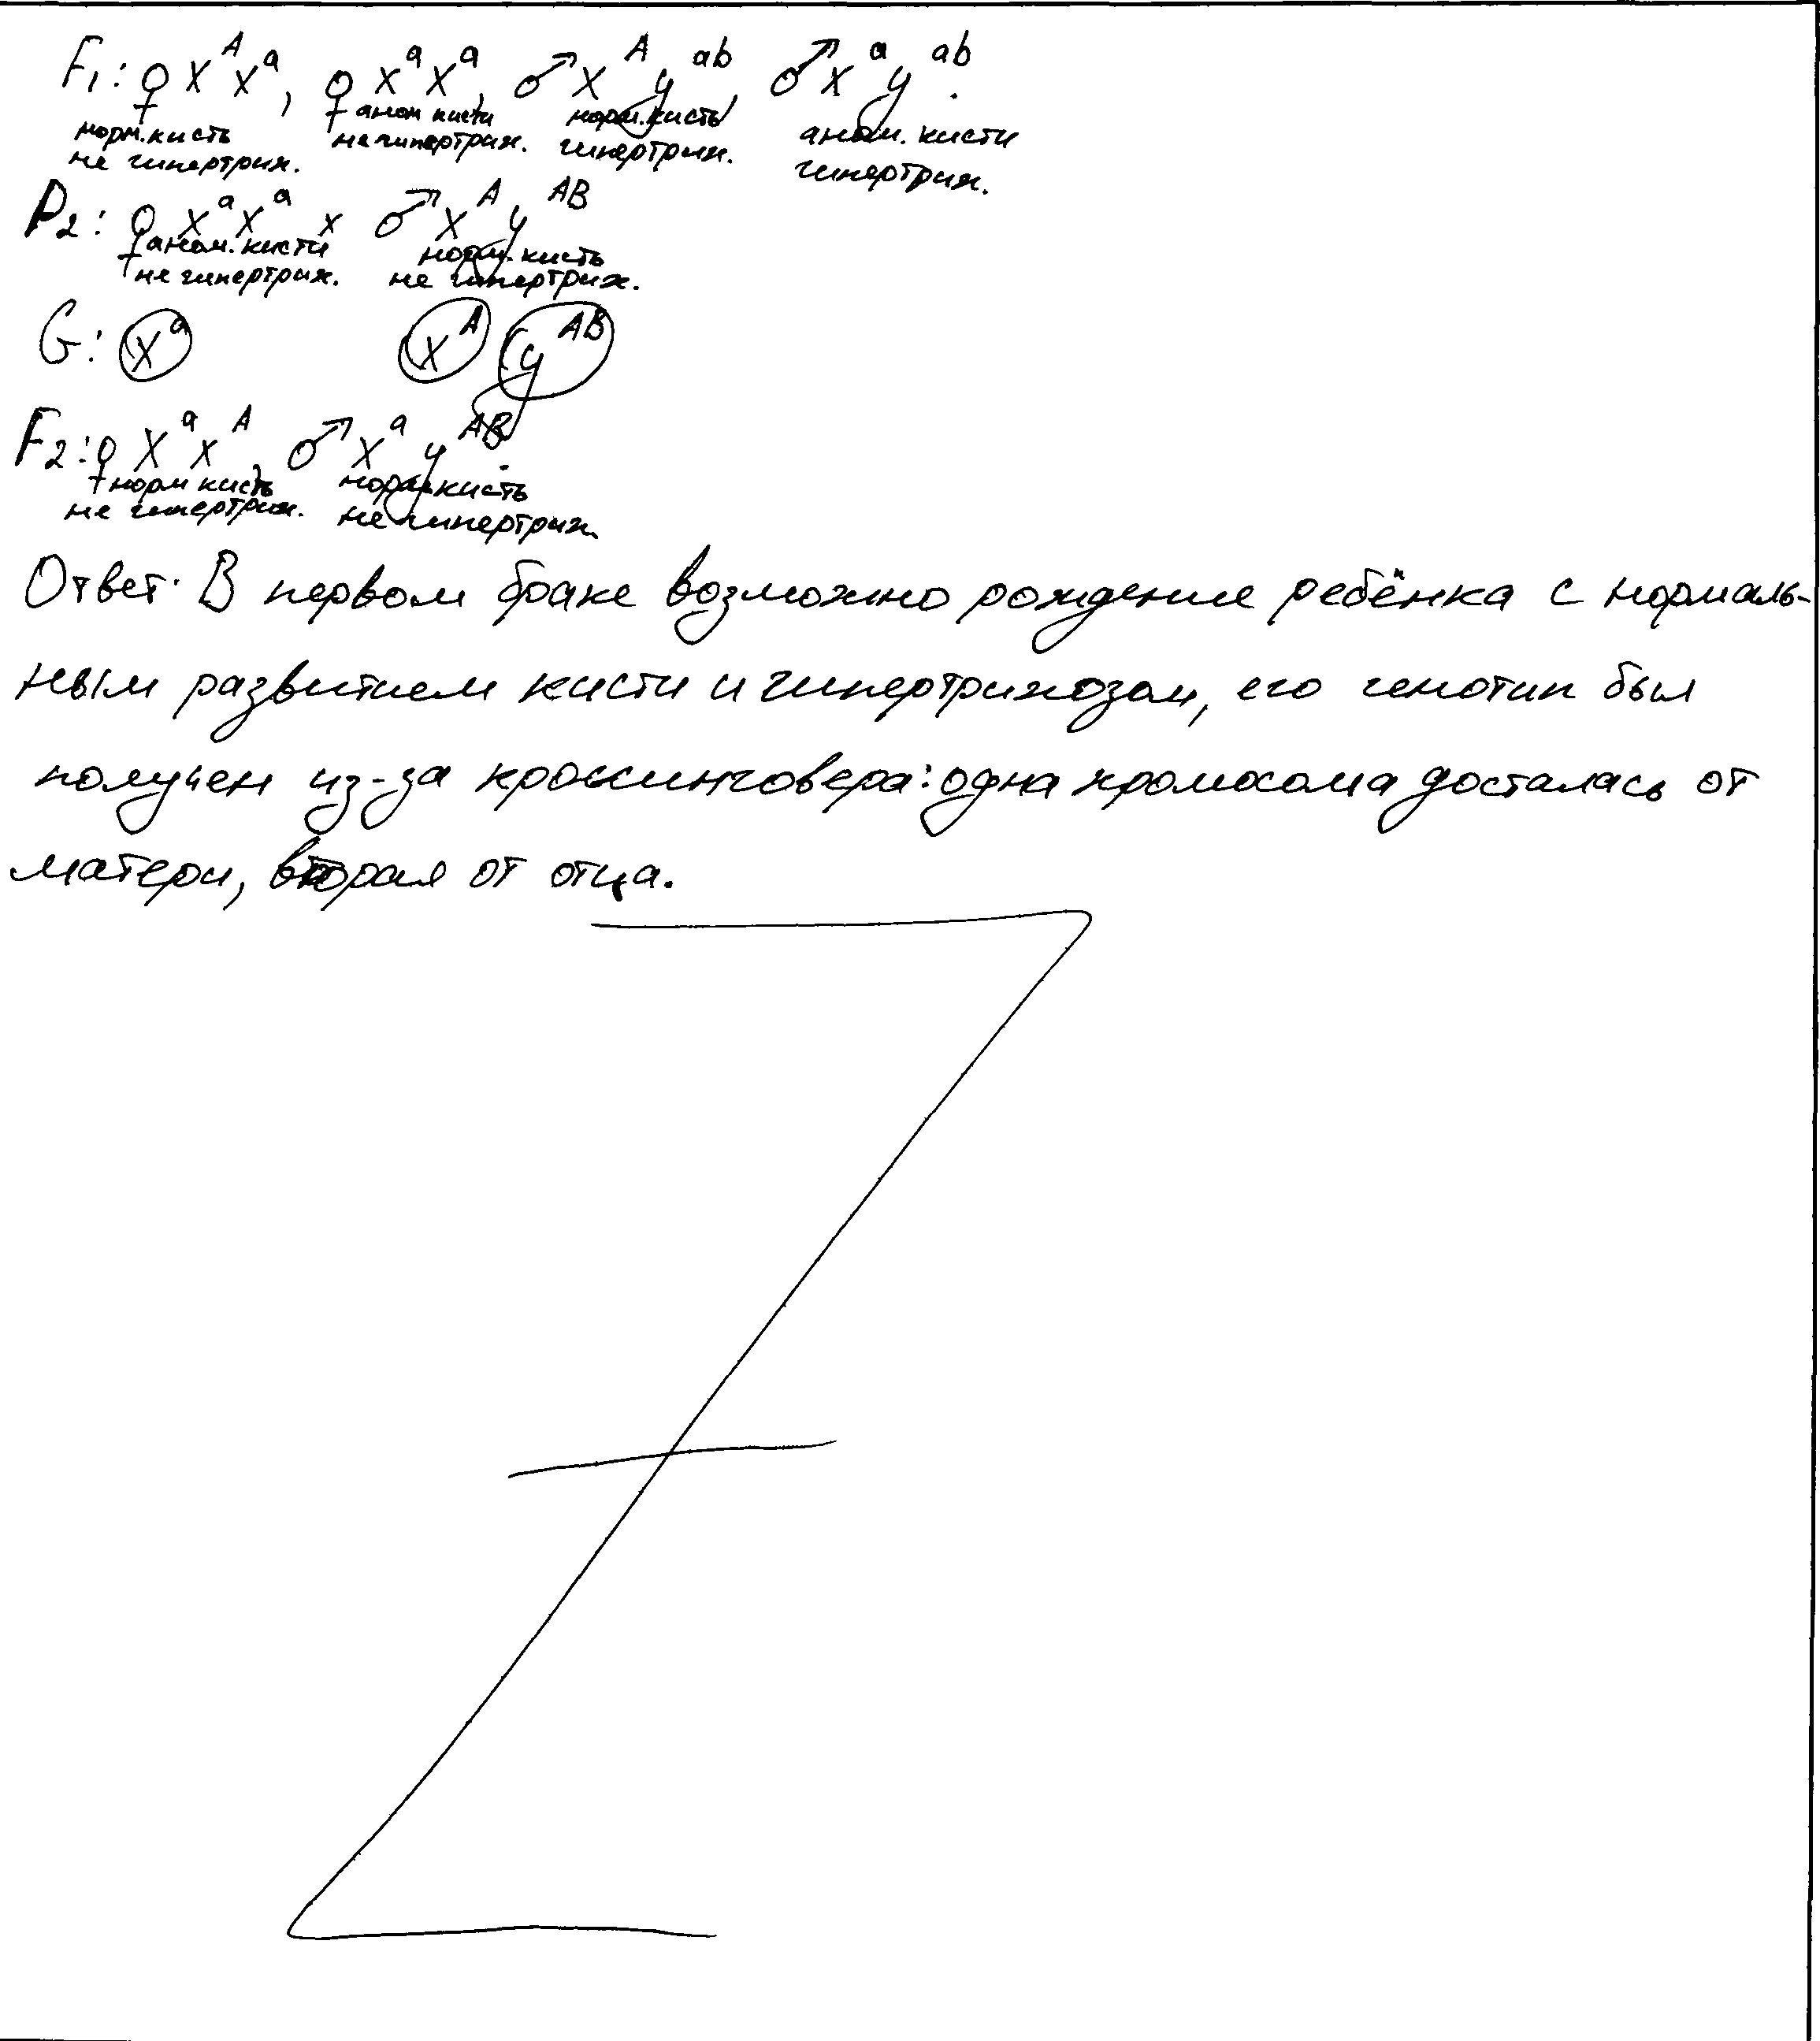 F1: ♀ X^A X^a, ♀ X^a X^a, ♂ X^A Y^ab, ♂ X^a Y^ab.
норм. кисть аном кисти норм. кисть аном. кисти
не гипертрих. не гипертрих. гипертрих. гипертрих.
P2: ♀ X^a X^a x ♂ X^A Y^AB
аном. кисти норм. кисть
не гипертрих. не гипертрих.
G: X^a X^A Y^AB
F2: ♀ X^a X^A, ♂ X^a Y^AB.
норм кисть норм. кисть
не гипертрих. не гипертрих.
Ответ: В первом браке возможно рождение ребёнка с нормаль-
ным развитием кисти и гипертрихозом, его генотип был
получен из-за кроссинговера: одна хромосома досталась от
матери, вторая от отца.